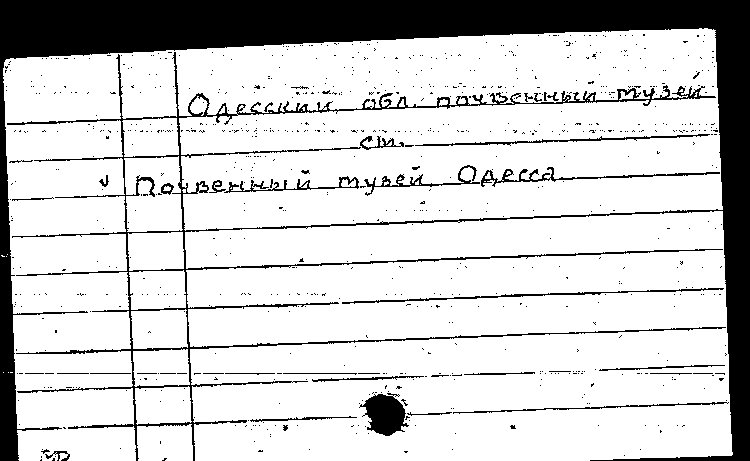 Одесский обл. почвенный музей
см.
✓ Почвенный музей, Одесса